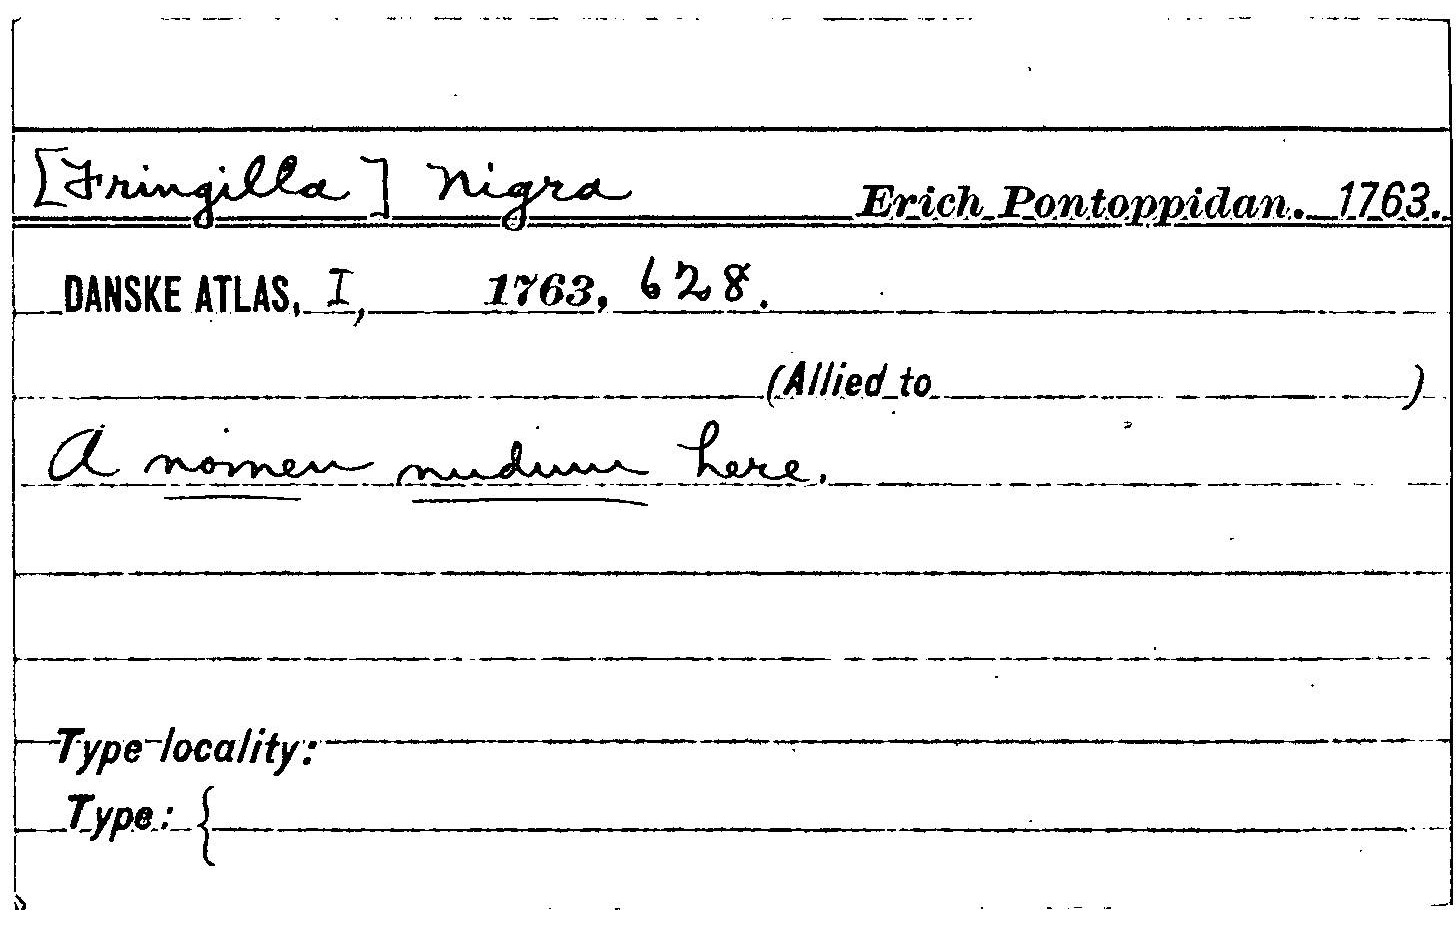 [Fringilla] Nigra Erich Pontoppidan. 1763.
DANSKE ATLAS, I, 1763, 628.
(Allied to )
A nomen nudum here.
Type locality:
Type: {